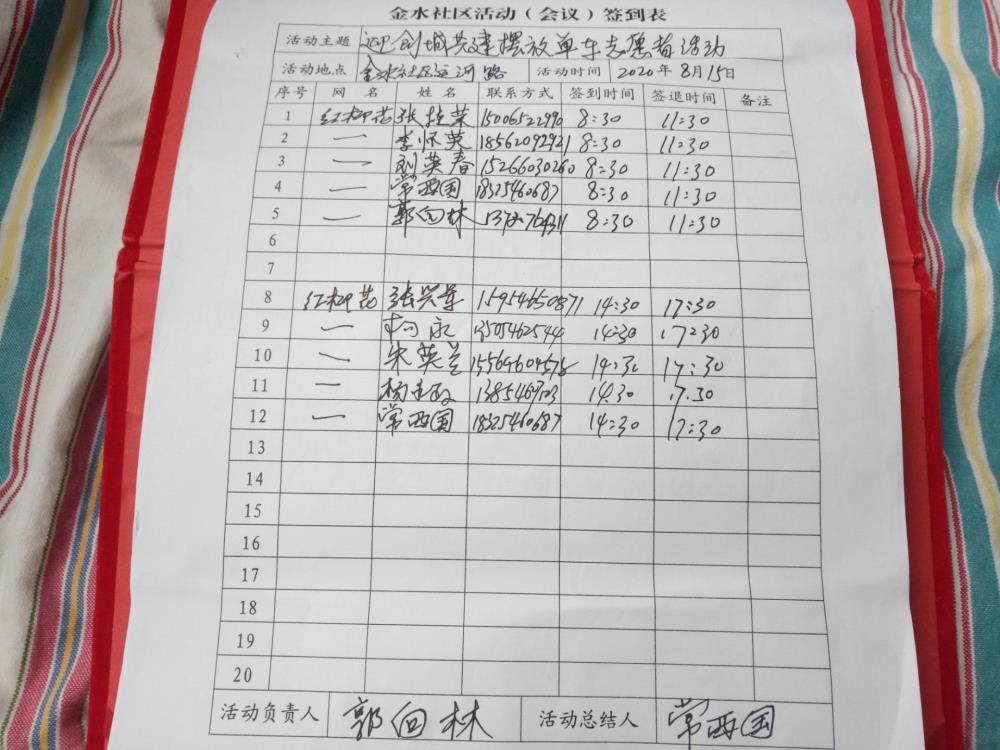 金水社区活动（会议）签到表
活动主题 迎创城共建摆放单车志愿者活动
活动地点 金水社区运河路 活动时间 2020年8月15日
序号 网 名 姓 名 联系方式 签到时间 签退时间 备注
1 红柳花 张桂荣 15006522990 8:30 11:30
2 一 李怀英 18562092921 8:30 11:30
3 一 刘英春 15266030260 8:30 11:30
4 一 常西国 18325460687 8:30 11:30
5 一 郭向林 8:30 11:30
6
7
8 红柳花 张兴军 15954650871 14:30 17:30
9 一 永 13505462544 14:30 17:30
10 一 朱英兰 14:30 17:30
11 一 杨 14.30 17.30
12 一 常西国 18325460687 14:30 17:30
13
14
15
16
17
18
19
20
活动负责人 郭向林 活动总结人 常西国